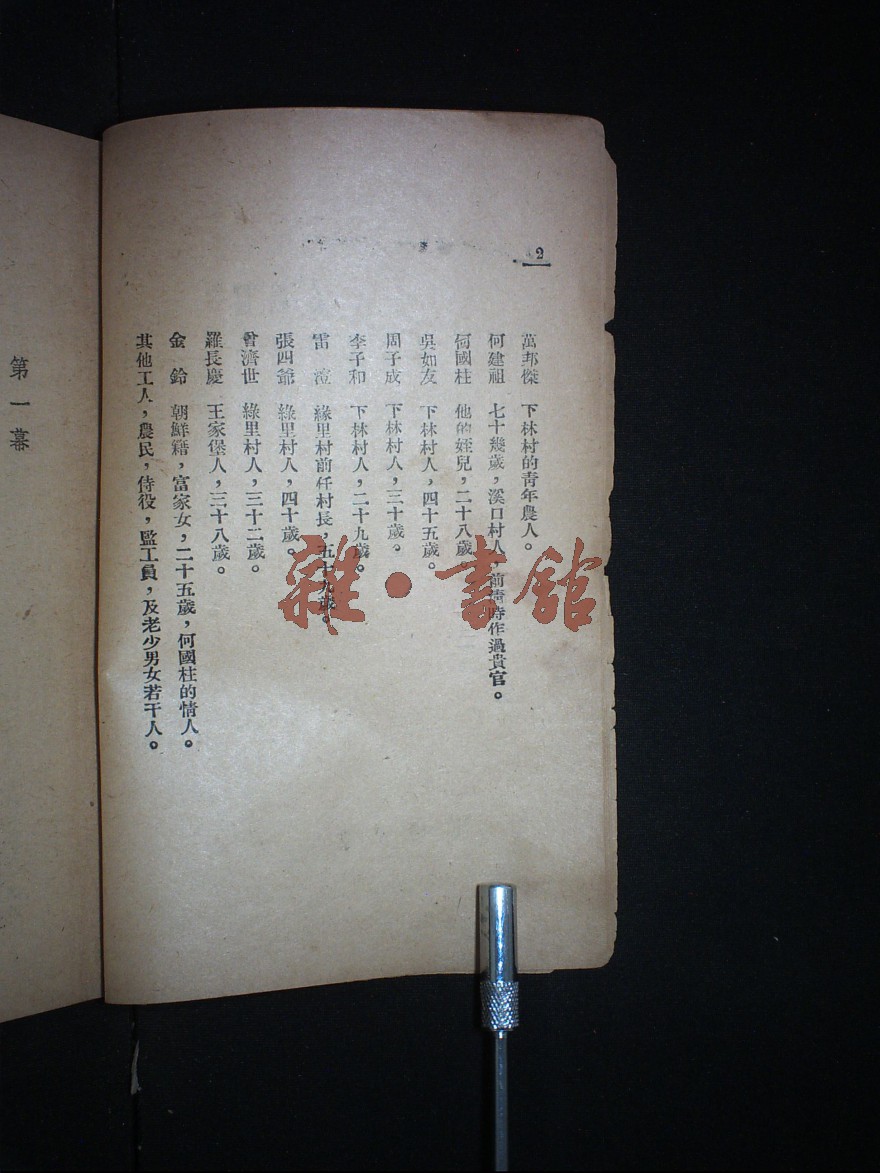 2
萬邦傑　下林村的靑年農人。
何建祖　七十幾歲，溪口村人，前淸時作過貴官。
何國柱　他的姪兒，二十八歲。
吳如友　下林村人，四十五歲。
周子成　下林村人，三十歲。
李子和　下林村人，二十九歲。
雷　澄　綠里村前任村長，五十九歲。
張四爺　綠里村人，四十歲。
曾濟世　綠里村人，三十二歲。
羅長慶　王家堡人，三十八歲。
金　鈴　朝鮮籍，富家女，二十五歲，何國柱的情人。
其他工人，農民，侍役，監工員，及老少男女若干人。
第一幕
雜·書館